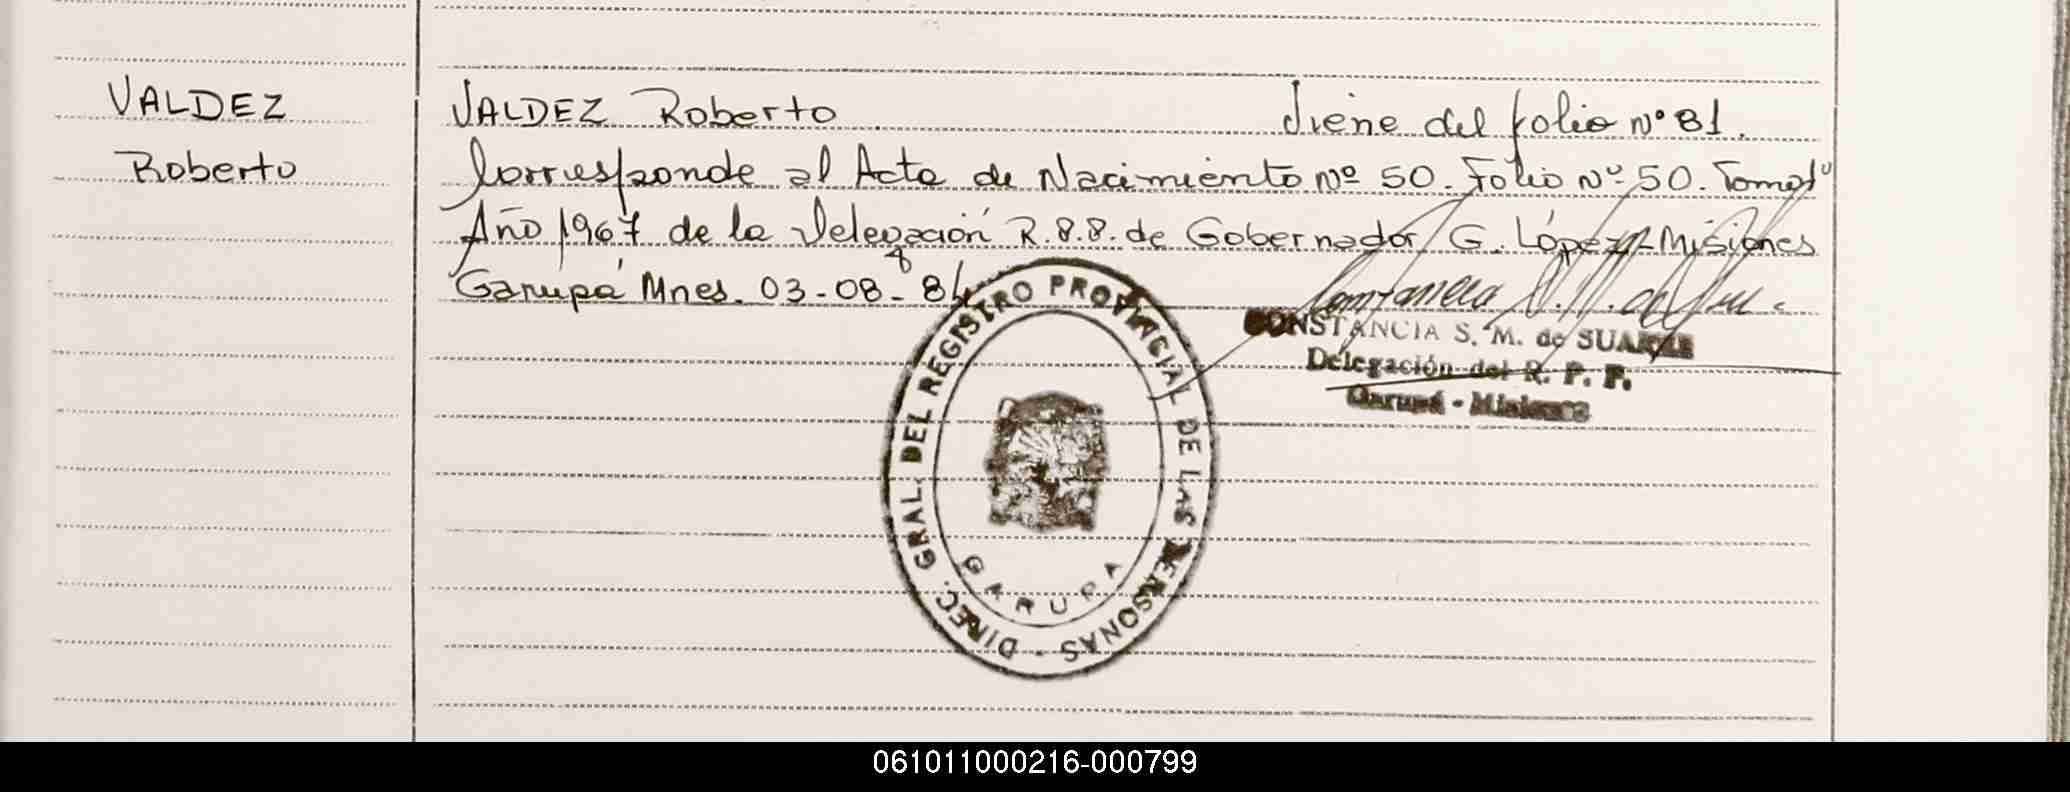 VALDEZ
Roberto
VALDEZ Roberto Viene del folio Nº 81.
Corresponde al Acta de Nacimiento Nº 50. Folio Nº 50. Tomo 1º
Año 1967 de la Delegación R.P.P. de Gobernador G. López-Misiones
Garupá Mnes. 03-08-84
CONSTANCIA S. M. de SUAREZ
Delegación del R. P. P.
Garupá - Misiones
DIREC. GRAL. DEL REGISTRO PROVINCIAL DE LAS PERSONAS -
GARUPA
061011000216-000799